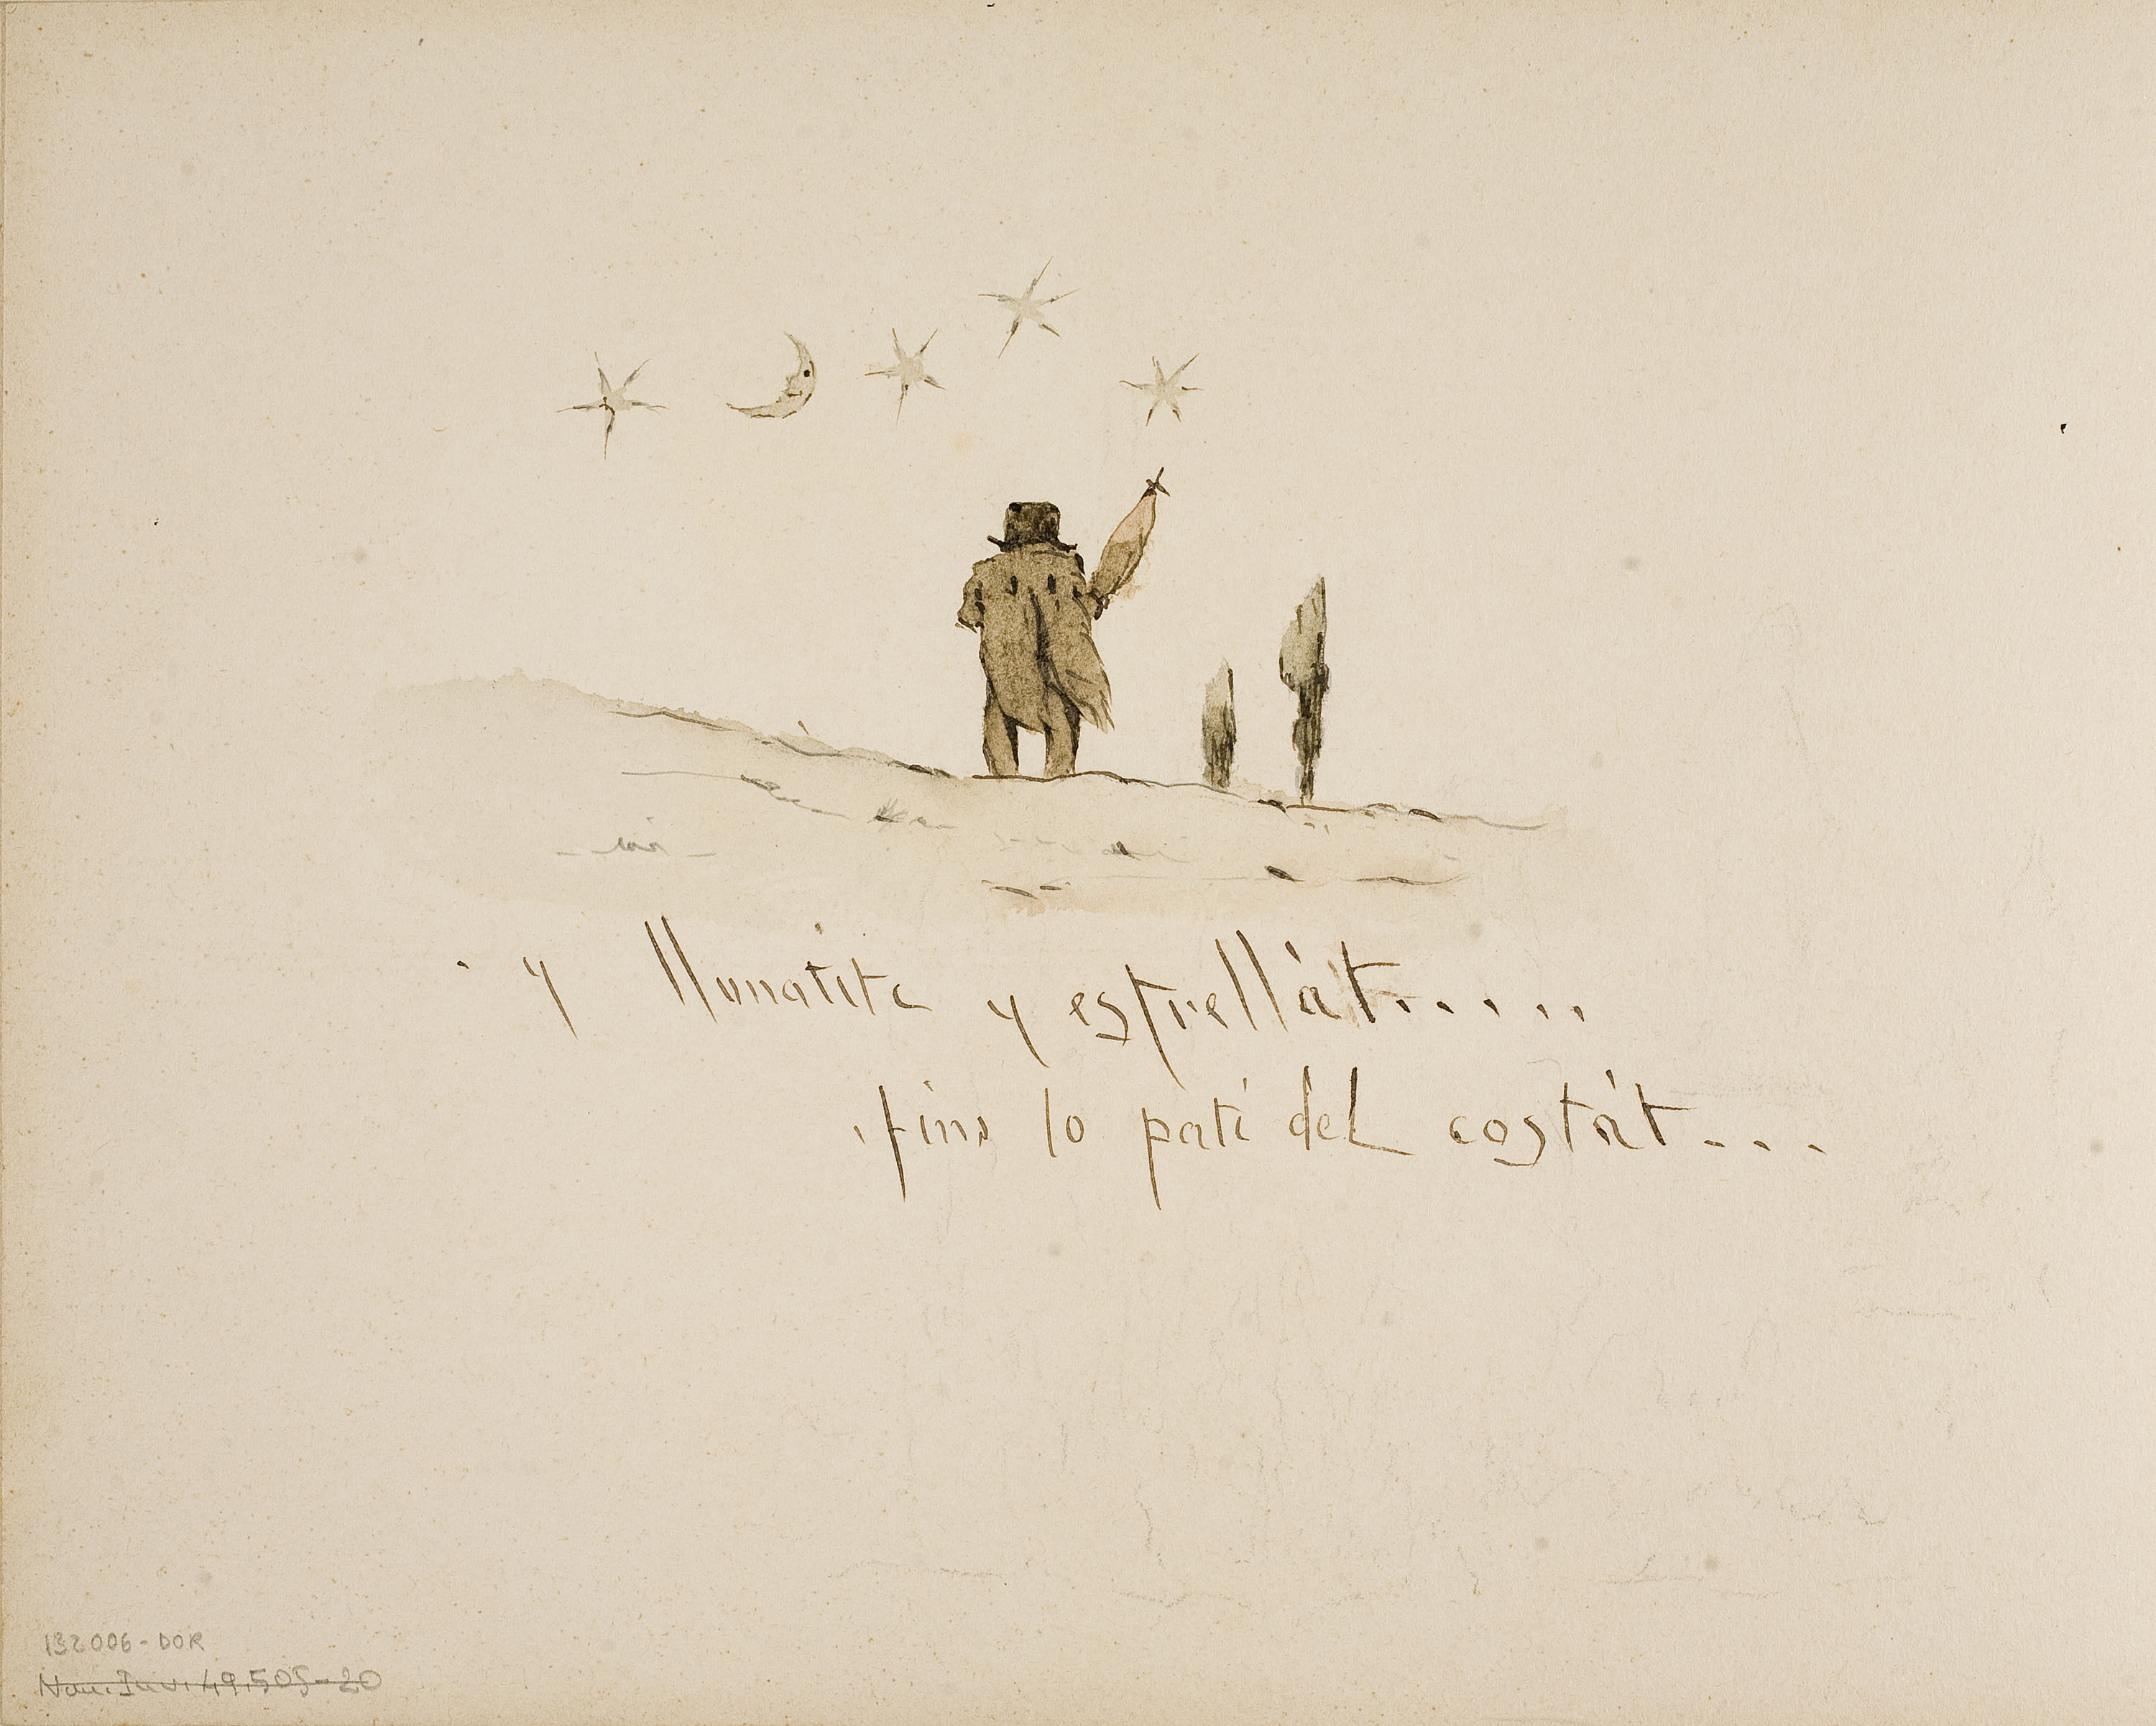 y llunatita y estrellát.....
fins lo pati del costát...
132006-DOR
Num. Inv. 49.505-20